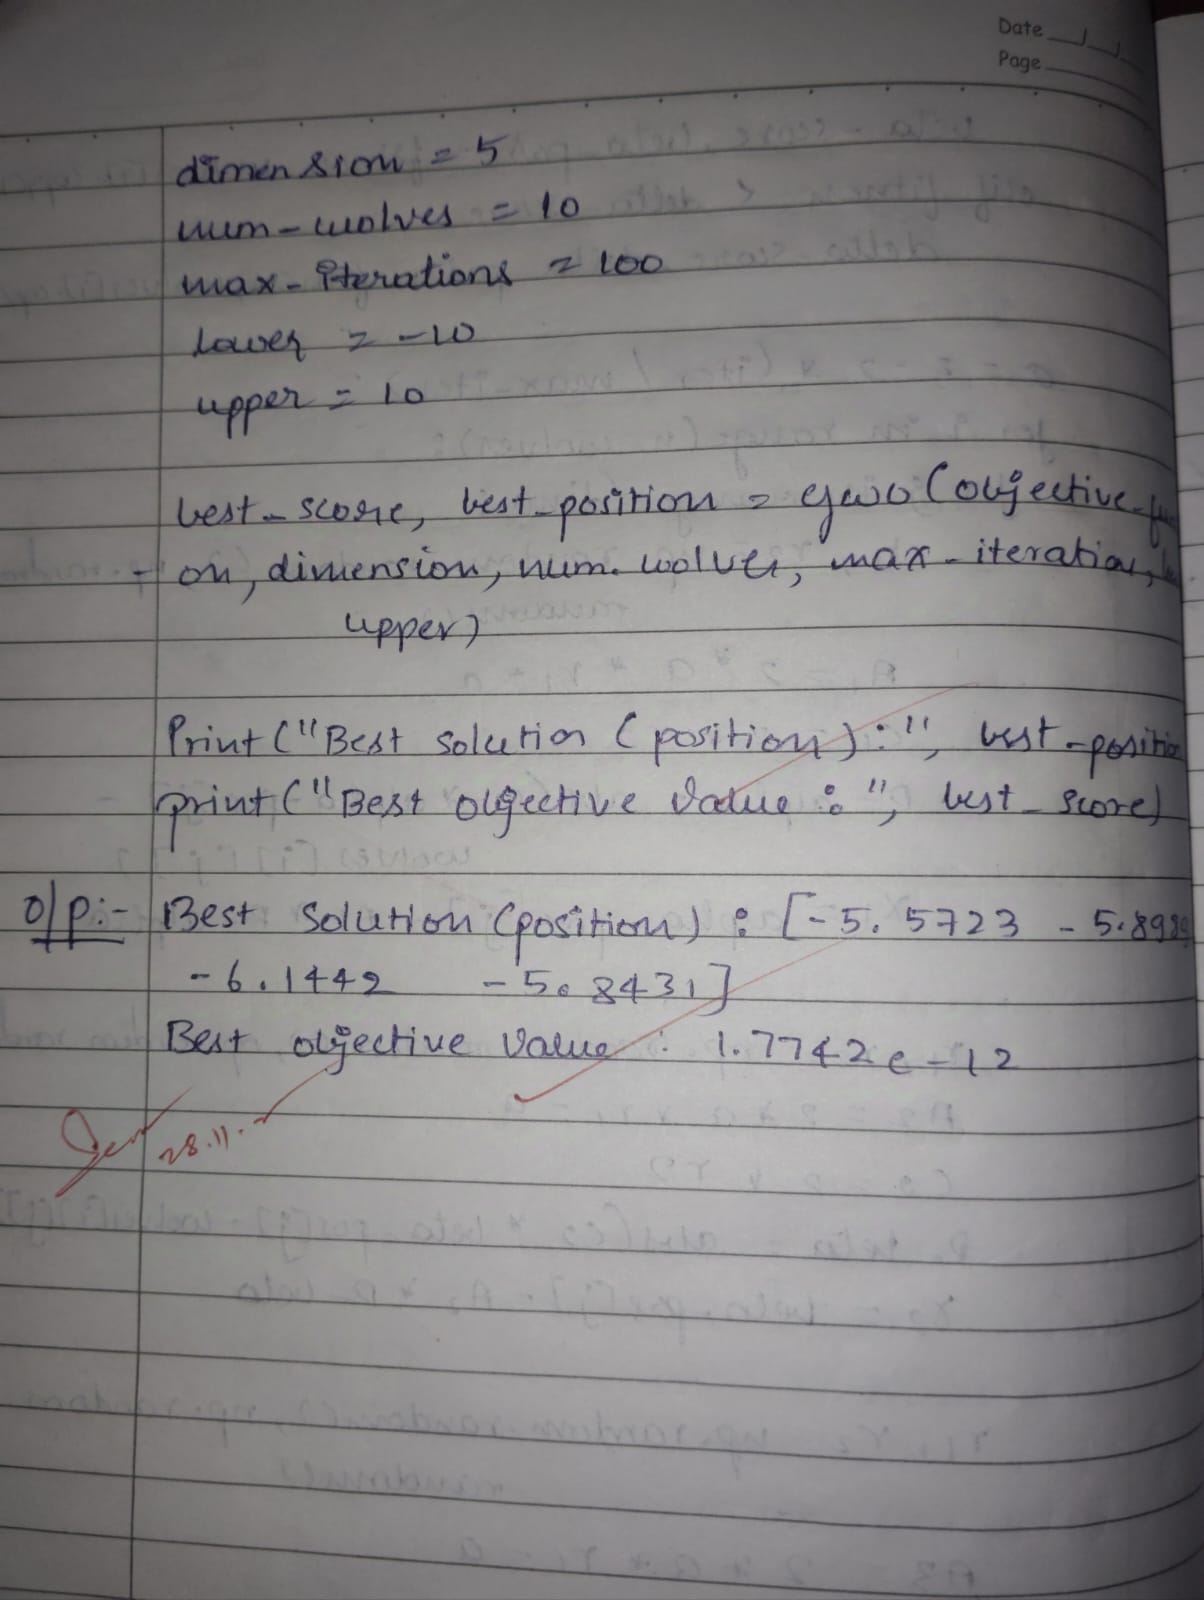 Date
Page
dimension = 5
num-wolves = 10
max-iterations = 100
lower = -10
upper = 10
best-score, best-position = gwo(objective-
on, dimension, num. wolves, max-iteration,
upper)
Print("Best solution (position):", best-position
print("Best objective value:", best-score)
o/p:- Best Solution (position) : [-5.5723 -5.8989
-6.1442 -5.8431]
Best objective value : 1.7742e-12
28.11.